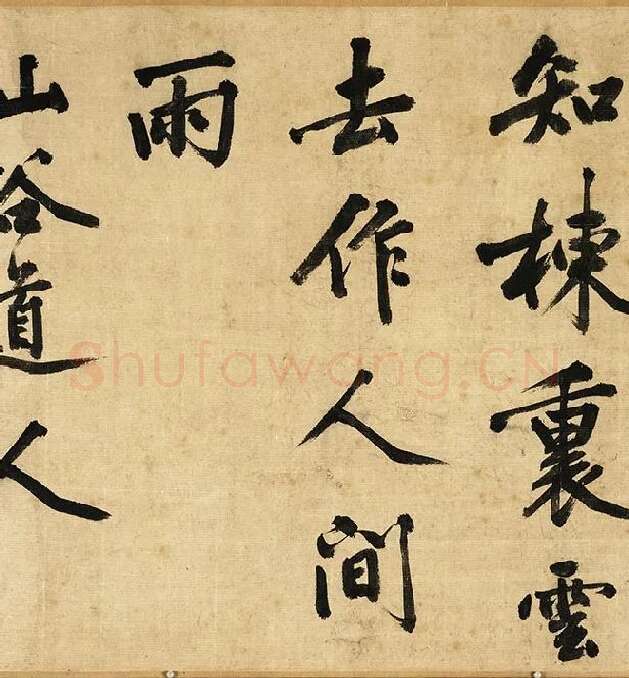 知棟裏雲
去作人間
雨
山谷道人
Shufawang.CN